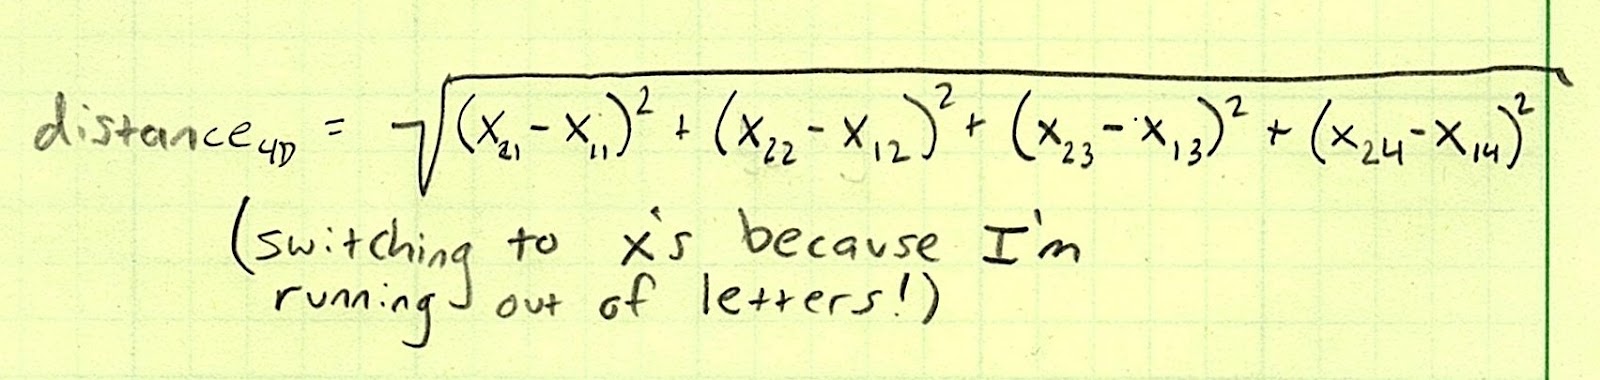 distance₄D = √((x₂₁ - x₁₁)² + (x₂₂ - x₁₂)² + (x₂₃ - x₁₃)² + (x₂₄ - x₁₄)²)
(switching to x's because I'm
running out of letters!)